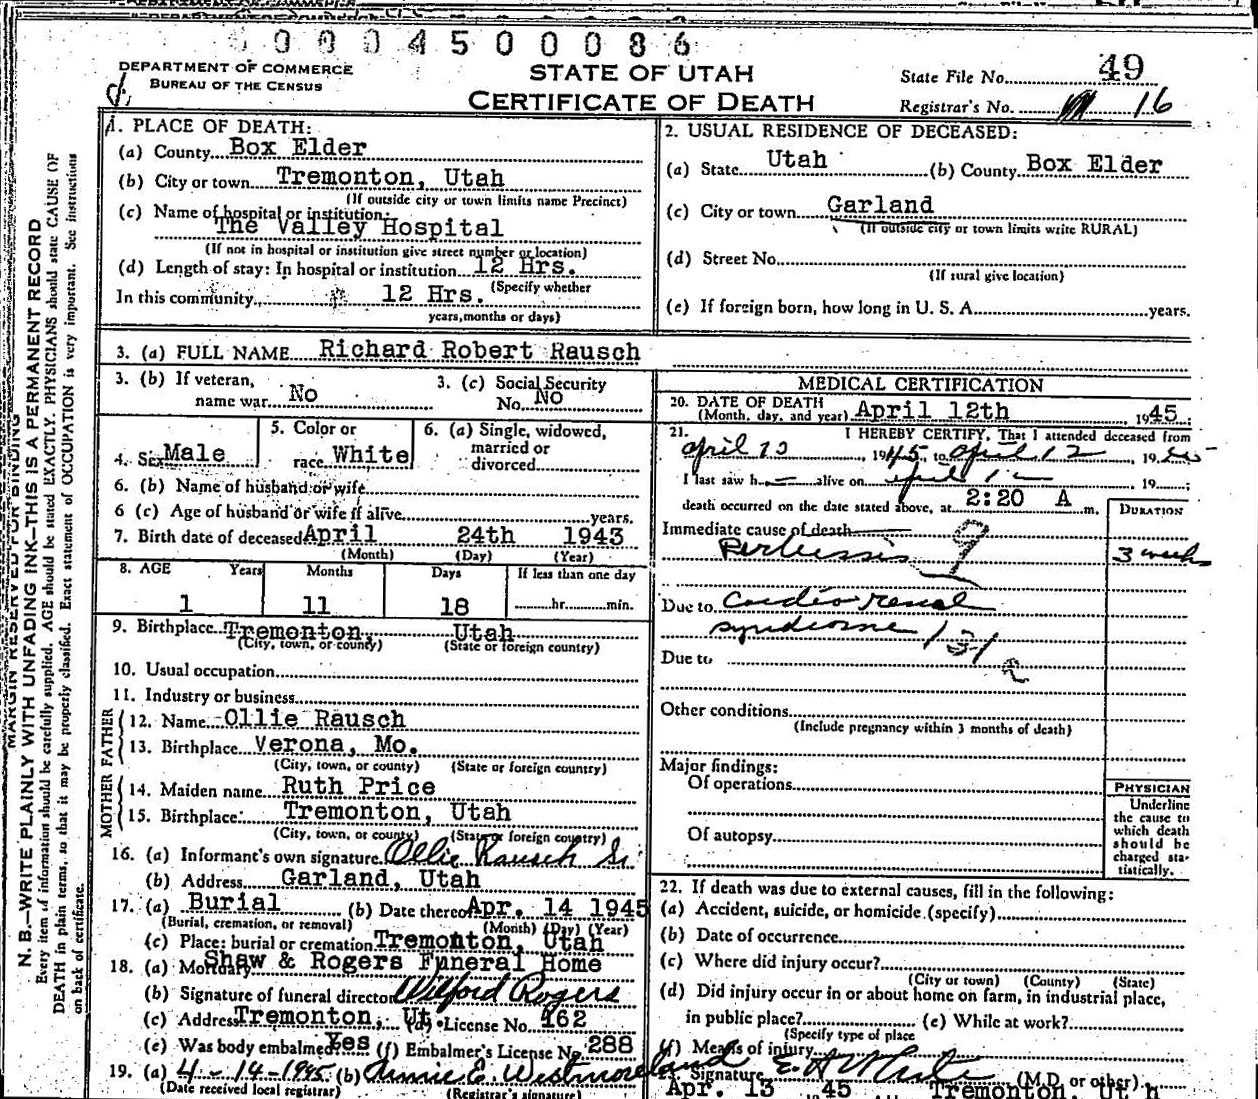 0004500086
DEPARTMENT OF COMMERCE
BUREAU OF THE CENSUS
STATE OF UTAH
CERTIFICATE OF DEATH
State File No. 49
Registrar's No. 16
MARGIN RESERVED FOR BINDING
N. B.—WRITE PLAINLY WITH UNFADING INK—THIS IS A PERMANENT RECORD
Every item of information should be carefully supplied. AGE should be stated EXACTLY. PHYSICIANS should state CAUSE OF
DEATH in plain terms, so that it may be properly classified. Exact statement of OCCUPATION is very important. See instructions
on back of certificate.
1. PLACE OF DEATH:
(a) County Box Elder
(b) City or town Tremonton, Utah
(If outside city or town limits name Precinct)
(c) Name of hospital or institution:
The Valley Hospital
(If not in hospital or institution give street number or location)
(d) Length of stay: In hospital or institution 12 Hrs.
(Specify whether
In this community 12 Hrs.
years, months or days)
2. USUAL RESIDENCE OF DECEASED:
(a) State Utah (b) County Box Elder
(c) City or town Garland
(If outside city or town limits write RURAL)
(d) Street No.
(If rural give location)
(e) If foreign born, how long in U. S. A. years.
3. (a) FULL NAME Richard Robert Rausch
3. (b) If veteran,
name war No
3. (c) Social Security
No. No
4. Sex Male
5. Color or
race White
6. (a) Single, widowed,
married or
divorced
6. (b) Name of husband or wife
6 (c) Age of husband or wife if alive years.
7. Birth date of deceased April 24th 1943
(Month) (Day) (Year)
8. AGE Years Months Days If less than one day
1 11 18 hr. min.
9. Birthplace Tremonton, Utah
(City, town, or county) (State or foreign country)
10. Usual occupation
11. Industry or business
FATHER
12. Name Ollie Rausch
13. Birthplace Verona, Mo.
(City, town, or county) (State or foreign country)
MOTHER
14. Maiden name Ruth Price
15. Birthplace Tremonton, Utah
(City, town, or county) (State or foreign country)
16. (a) Informant's own signature Ollie Rausch Sr.
(b) Address Garland, Utah
17. (a) Burial (b) Date thereof Apr. 14 1945
(Burial, cremation, or removal) (Month) (Day) (Year)
(c) Place: burial or cremation Tremonton, Utah
18. (a) Mortuary Shaw & Rogers Funeral Home
(b) Signature of funeral director Wilford Rogers
(c) Address Tremonton, Ut. (d) License No. 162
(e) Was body embalmed? Yes (f) Embalmer's License No. 288
19. (a) 4-14-1945 (b) Annie E. Westmoreland
(Date received local registrar) (Registrar's signature)
MEDICAL CERTIFICATION
20. DATE OF DEATH
(Month, day, and year) April 12th 1945
21. I HEREBY CERTIFY, That I attended deceased from
April 12, 1945, to April 12, 1945
I last saw h alive on April 12 19
death occurred on the date stated above, at 2:20 A m.
DURATION
Immediate cause of death
Pertussis 9 3 weeks
Due to Cardio renal
syndrome 131a
Due to
Other conditions
(Include pregnancy within 3 months of death)
Major findings:
Of operations
Of autopsy
PHYSICIAN
Underline
the cause to
which death
should be
charged sta-
tistically.
22. If death was due to external causes, fill in the following:
(a) Accident, suicide, or homicide (specify)
(b) Date of occurrence
(c) Where did injury occur?
(City or town) (County) (State)
(d) Did injury occur in or about home on farm, in industrial place,
in public place? (e) While at work?
(Specify type of place
(f) Means of injury
Signature E. A. White (M.D. or other)
Apr. 13 45 Tremonton, Utah